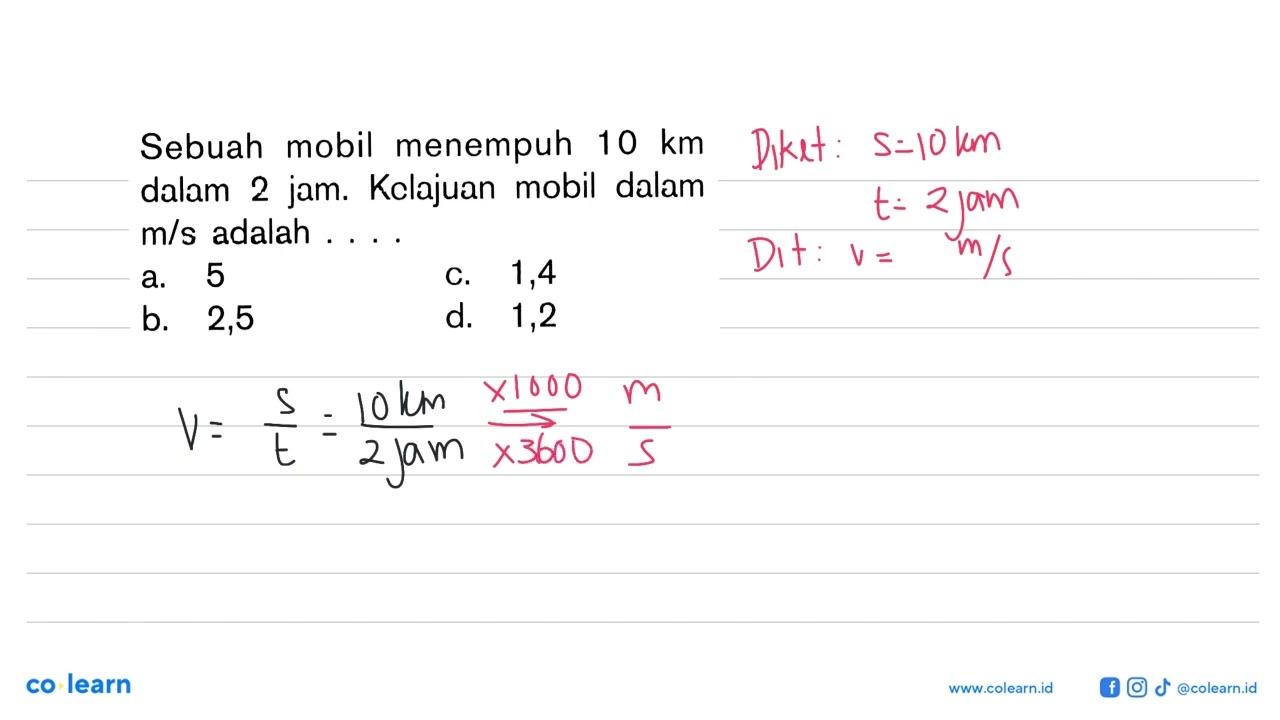 Sebuah mobil menempuh 10 km
dalam 2 jam. Kclajuan mobil dalam
m/s adalah . . . .
a. 5 c. 1,4
b. 2,5 d. 1,2
Diket: s=10 km
t= 2 jam
Dit: v= m/s
V= s/t = 10 km/2 jam ×1000/×3600 → m/s
co learn
www.colearn.id @colearn.id